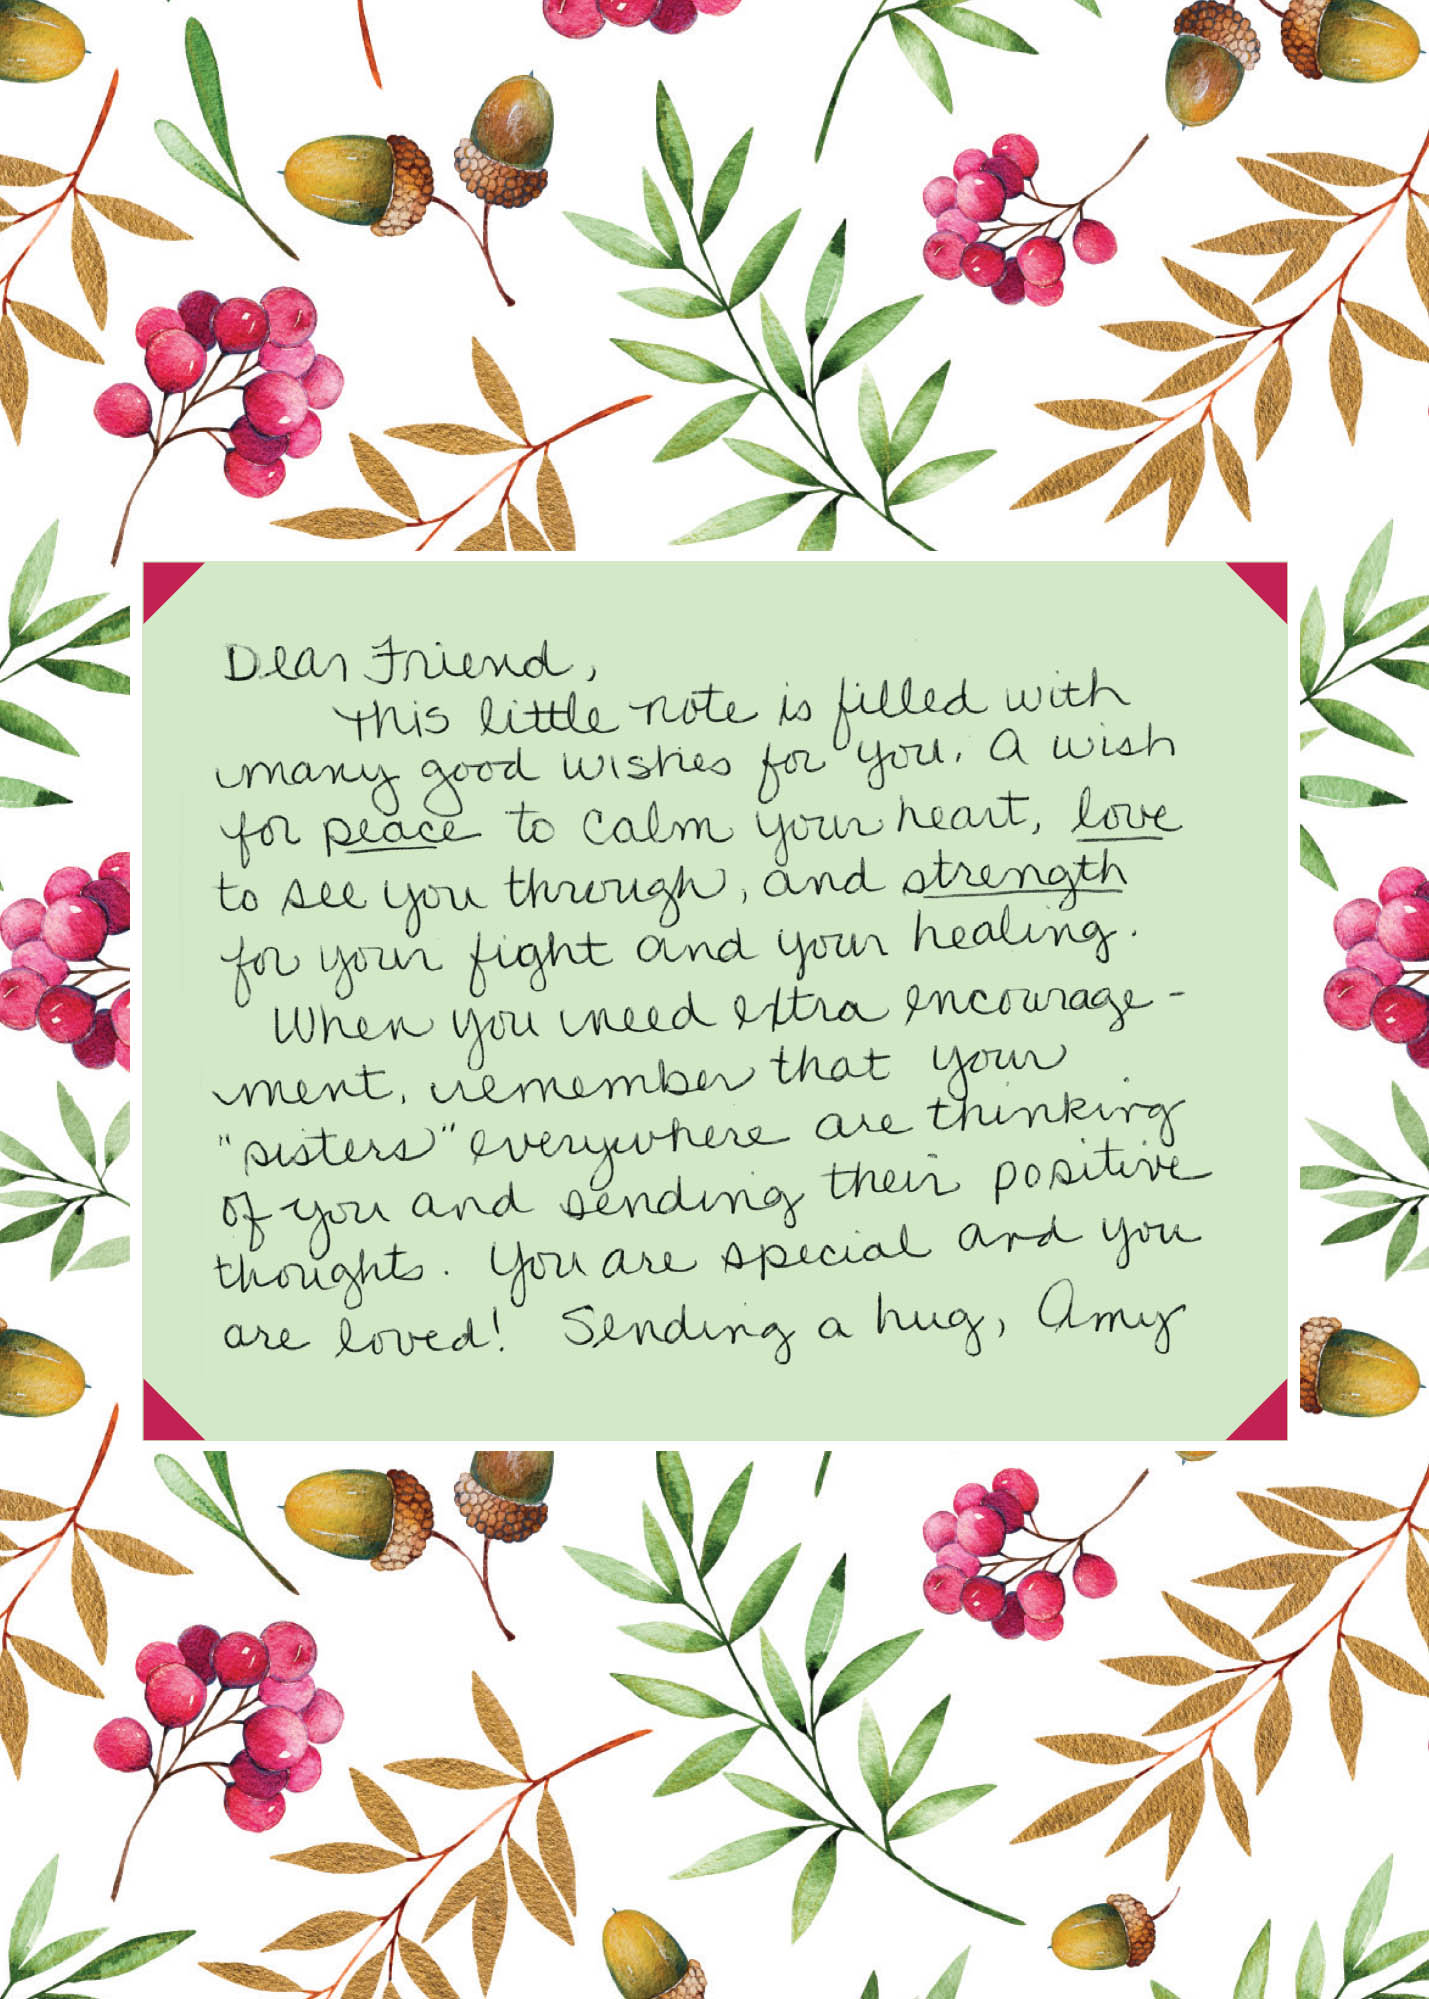 Dear Friend,
This little note is filled with
many good wishes for you. A wish
for peace to calm your heart, love
to see you through, and strength
for your fight and your healing.
When you need extra encourage-
ment, remember that your
"sisters" everywhere are thinking
of you and sending their positive
thoughts. You are special and you
are loved! Sending a hug, Amy